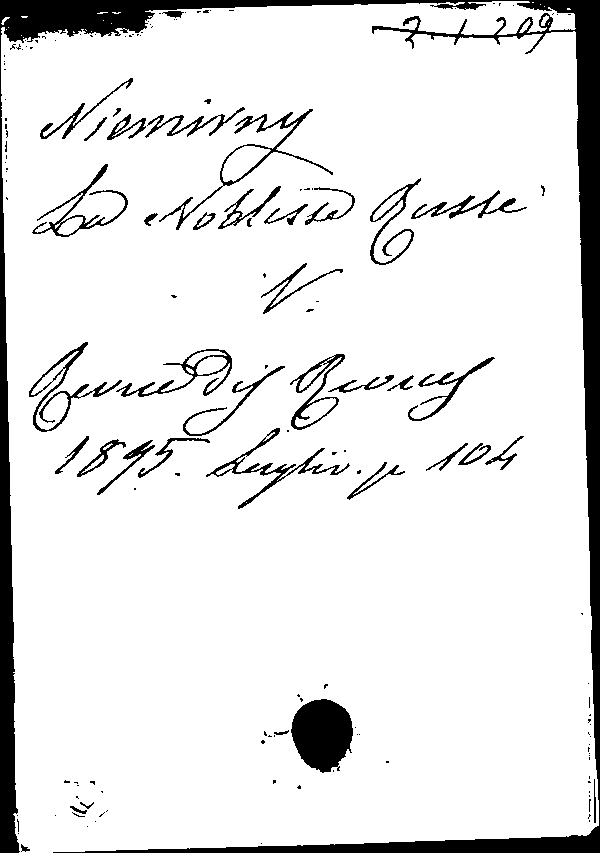 2.1.209
Niemirny
La Noblesse Russe
V.
Revue des Revues
1895. Luglio. p 104